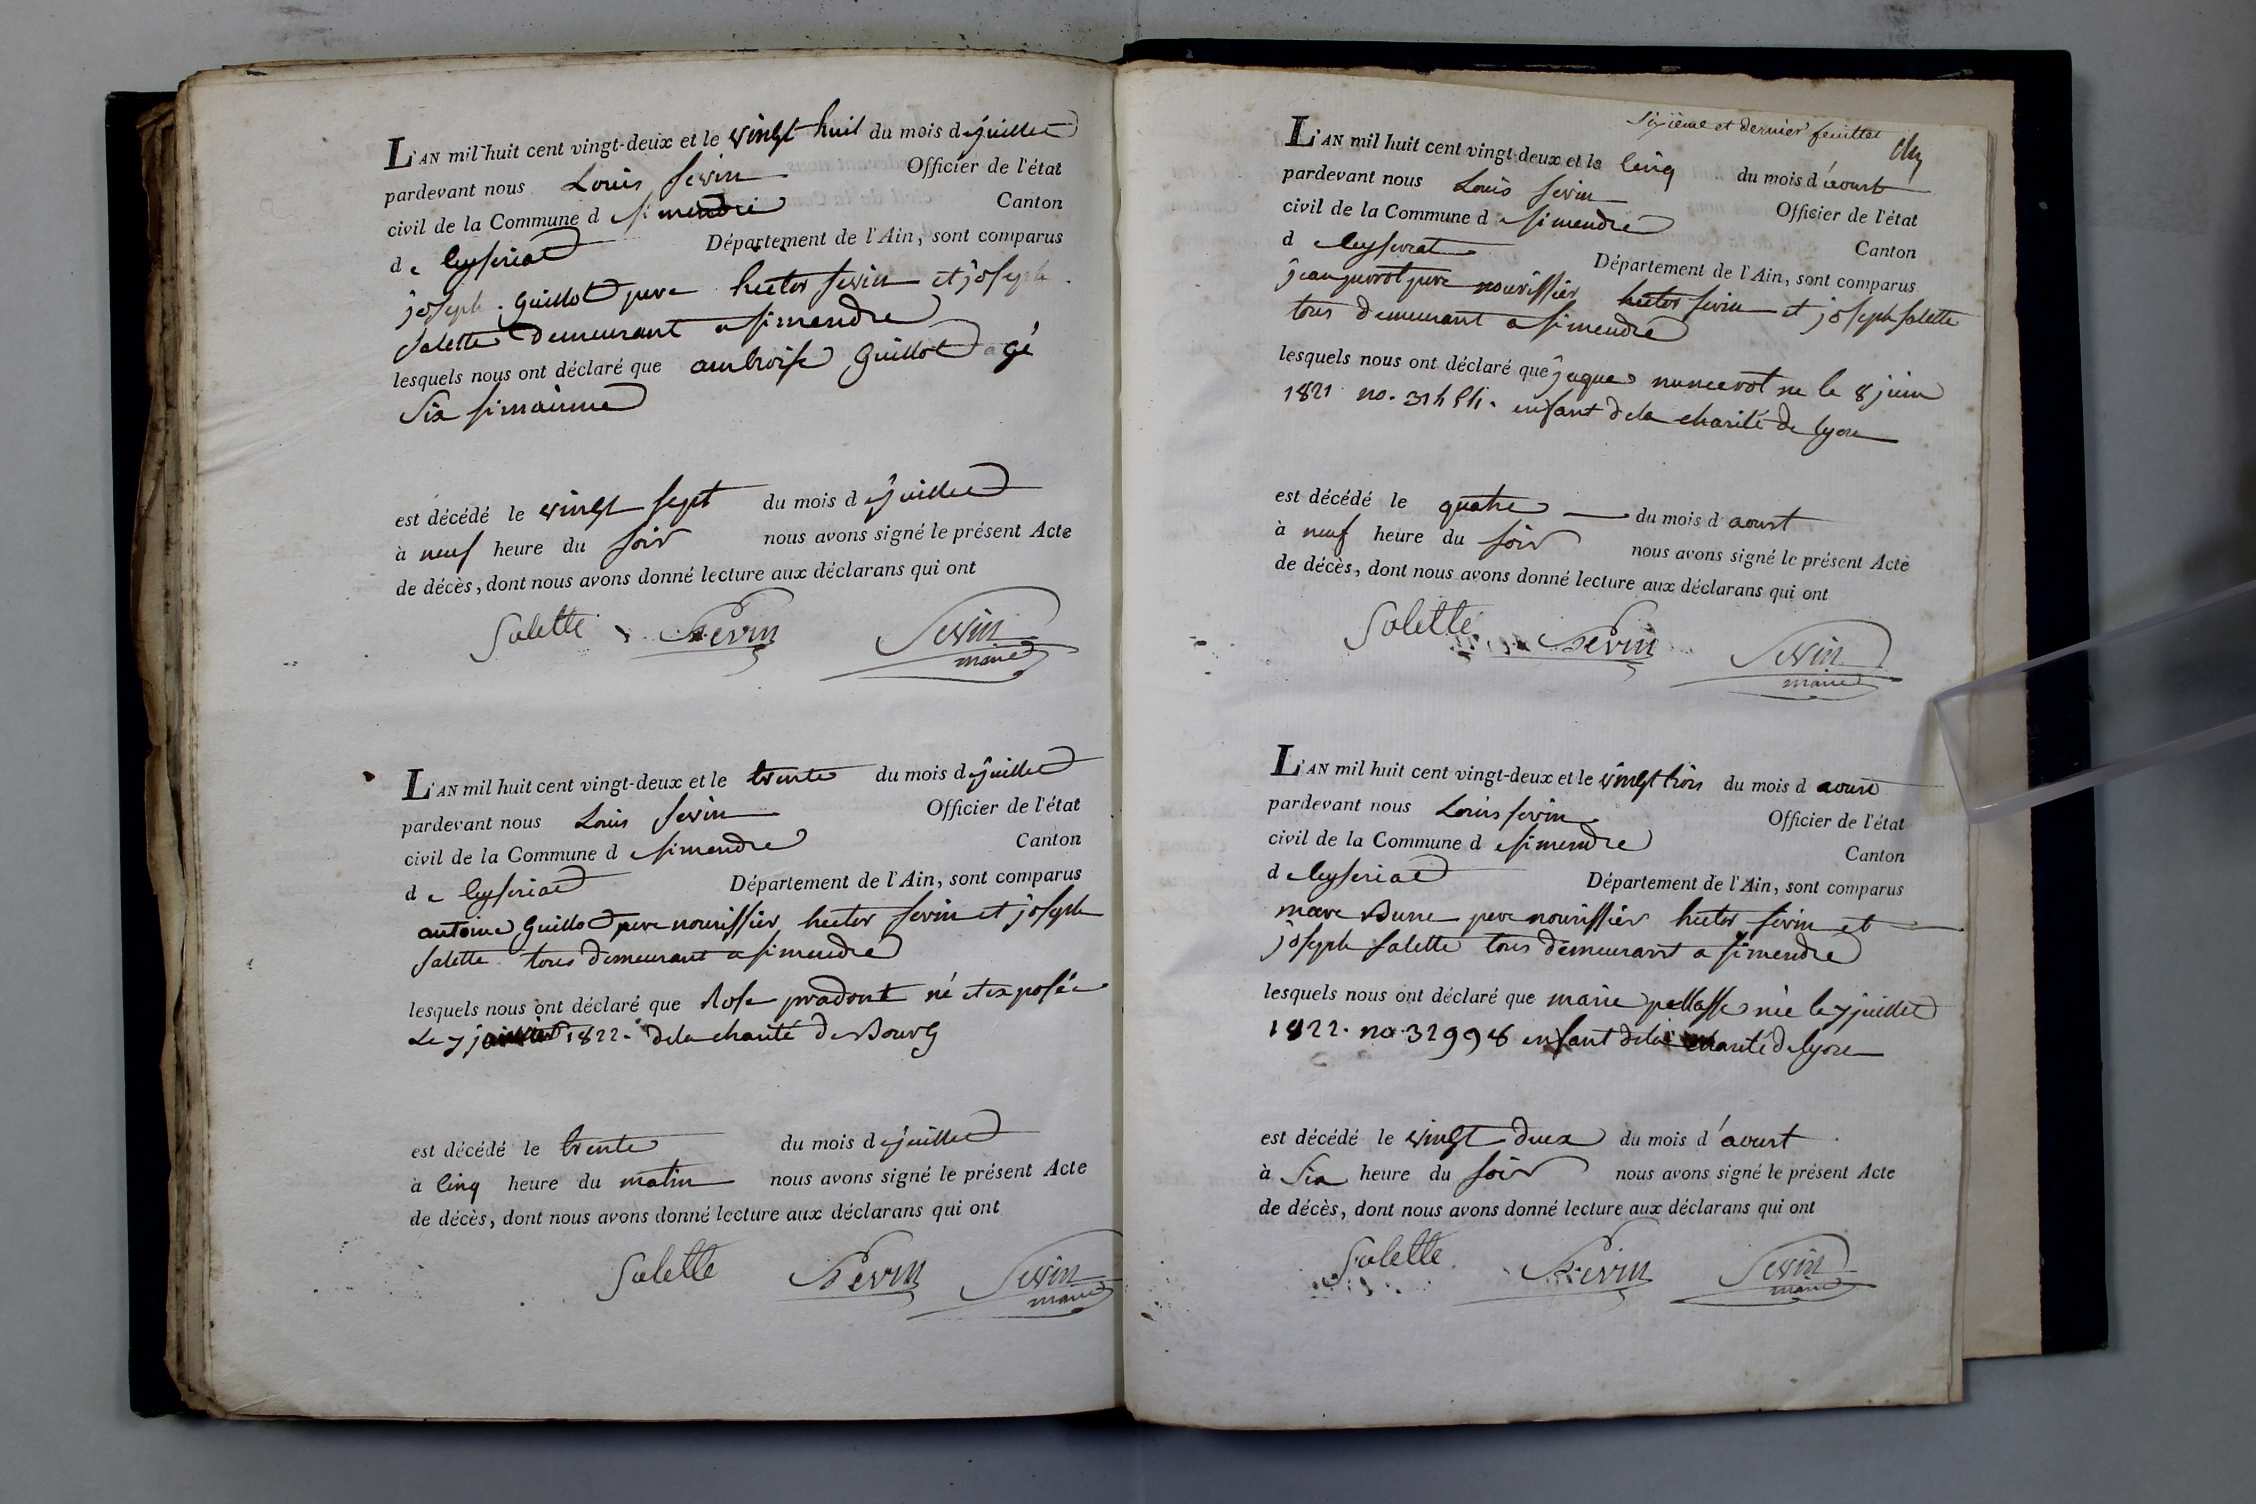 L'AN mil huit cent vingt-deux et le vingt huit du mois de juillet
pardevant nous Louis Sevin Officier de l'état
civil de la Commune d Simendre Canton
de Ceyseriat Département de l'Ain, sont comparus
joseph Guillot pere hector Sevin et joseph
Salette Demeurant a Simendre
lesquels nous ont déclaré que ambroise Guillot agé
Six Simainne
est décédé le vingt sept du mois de juillet
à neuf heure du soir nous avons signé le présent Acte
de décès, dont nous avons donné lecture aux déclarans qui ont
Salette Sevin Sevin
maire
L'AN mil huit cent vingt-deux et le trente du mois de juillet
pardevant nous Louis Sevin Officier de l'état
civil de la Commune d Simendre Canton
de Ceyseriat Département de l'Ain, sont comparus
antoine Guillot pere nourissier hector Sevin et joseph
Salette tous Demeurant a Simendre
lesquels nous ont déclaré que Rose pradont né et exposée
Le 7 1822. de la charité de Bourg
est décédé le trente du mois de juillet
à cinq heure du matin nous avons signé le présent Acte
de décès, dont nous avons donné lecture aux déclarans qui ont
Salette Sevin Sevin
maire
Sixième et dernier feuillet
L'AN mil huit cent vingt-deux et le cinq du mois d'aoust
pardevant nous Louis Sevin Officier de l'état
civil de la Commune de Simendre Canton
d Ceyseriat Département de l'Ain, sont comparus
jean perrot pere nourissier hector Sevin et joseph Salette
tous Demeurant a Simendre
lesquels nous ont déclaré que jaques né le 8 juin
1821 no. enfant de la charité de lyon
est décédé le quatre du mois d aoust
à neuf heure du soir nous avons signé le présent Acte
de décès, dont nous avons donné lecture aux déclarans qui ont
Salette Sevin Sevin
maire
L'AN mil huit cent vingt-deux et le vingt trois du mois d aoust
pardevant nous Louis Sevin Officier de l'état
civil de la Commune d Simendre Canton
de Ceyseriat Département de l'Ain, sont comparus
marc Bune pere nourissier hector Sevin et
joseph Salette tous demeurant a Simendre
lesquels nous ont déclaré que marie pellasse née le 7 juillet
1822. no. 32998 enfant de la charité de lyon
est décédé le vingt deux du mois d'aoust
à Six heure du soir nous avons signé le présent Acte
de décès, dont nous avons donné lecture aux déclarans qui ont
Salette Sevin Sevin
maire